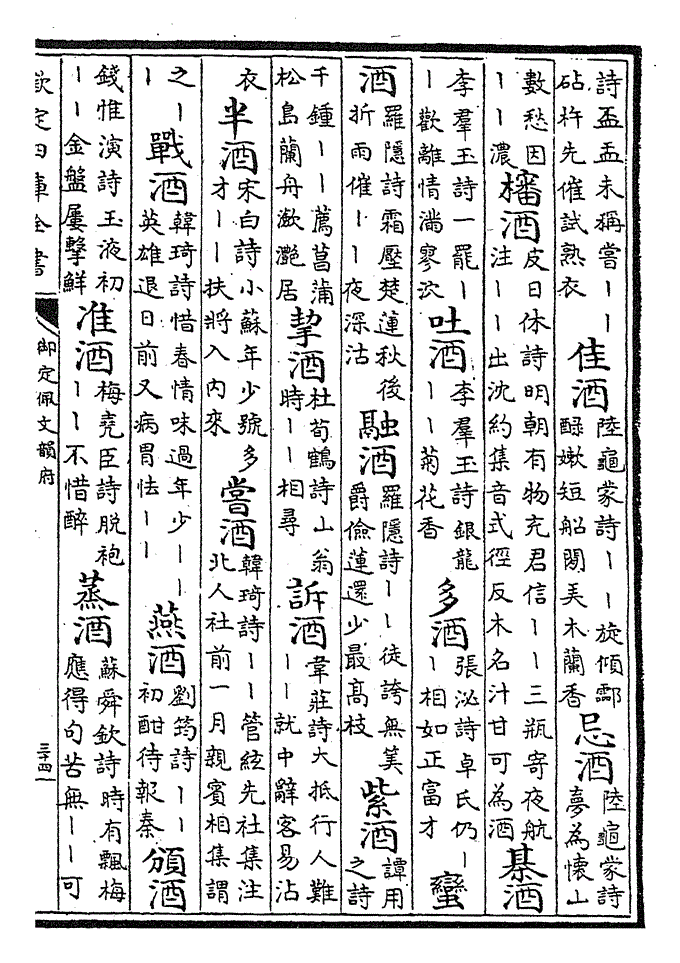 詩盃盃未稱嘗｜｜
砧杵先催試熟衣
佳酒
陸龜蒙詩｜｜旋傾酃
醁嫩短船閒弄木蘭香
忌酒
陸龜蒙詩
夢為懷山
數愁因
｜｜濃
橎酒
皮日休詩明朝有物充君信｜｜三瓶寄夜航
注｜｜出沈約集音式徑反木名汁甘可為酒
綦酒
李羣玉詩一罷｜
｜歡離情滿寥泬
吐酒
李羣玉詩銀龍
｜｜菊花香
多酒
張泌詩卓氏仍｜
｜相如正富才
蠻
酒
羅隱詩霜壓楚蓮秋後
折雨催｜｜夜深沽
融酒
羅隱詩｜｜徒誇無筭
爵儉蓮還少最高枝
紫酒
譚用
之詩
千鍾｜｜薦菖蒲
松島蘭舟瀲灧居
挈酒
杜荀鶴詩山翁
時｜｜相尋
訴酒
韋莊詩大抵行人難
｜｜就中辭客易沾
衣
半酒
宋白詩小蘇年少號多
才｜｜扶將入內來
嘗酒
韓琦詩｜｜管絃先社集注
北人社前一月親賓相集謂
之｜
｜
戰酒
韓琦詩惜春情味過年少｜｜
英雄退日前又病胃怯｜｜
燕酒
劉筠詩｜｜
初酣待報秦
頒酒
錢惟演詩玉液初
｜｜金盤屢擊鮮
准酒
梅堯臣詩脫袍
｜｜不惜醉
蒸酒
蘇舜欽詩時有飄梅
應得句苦無｜｜可
欽定四庫全書
御定佩文韻府
三十四